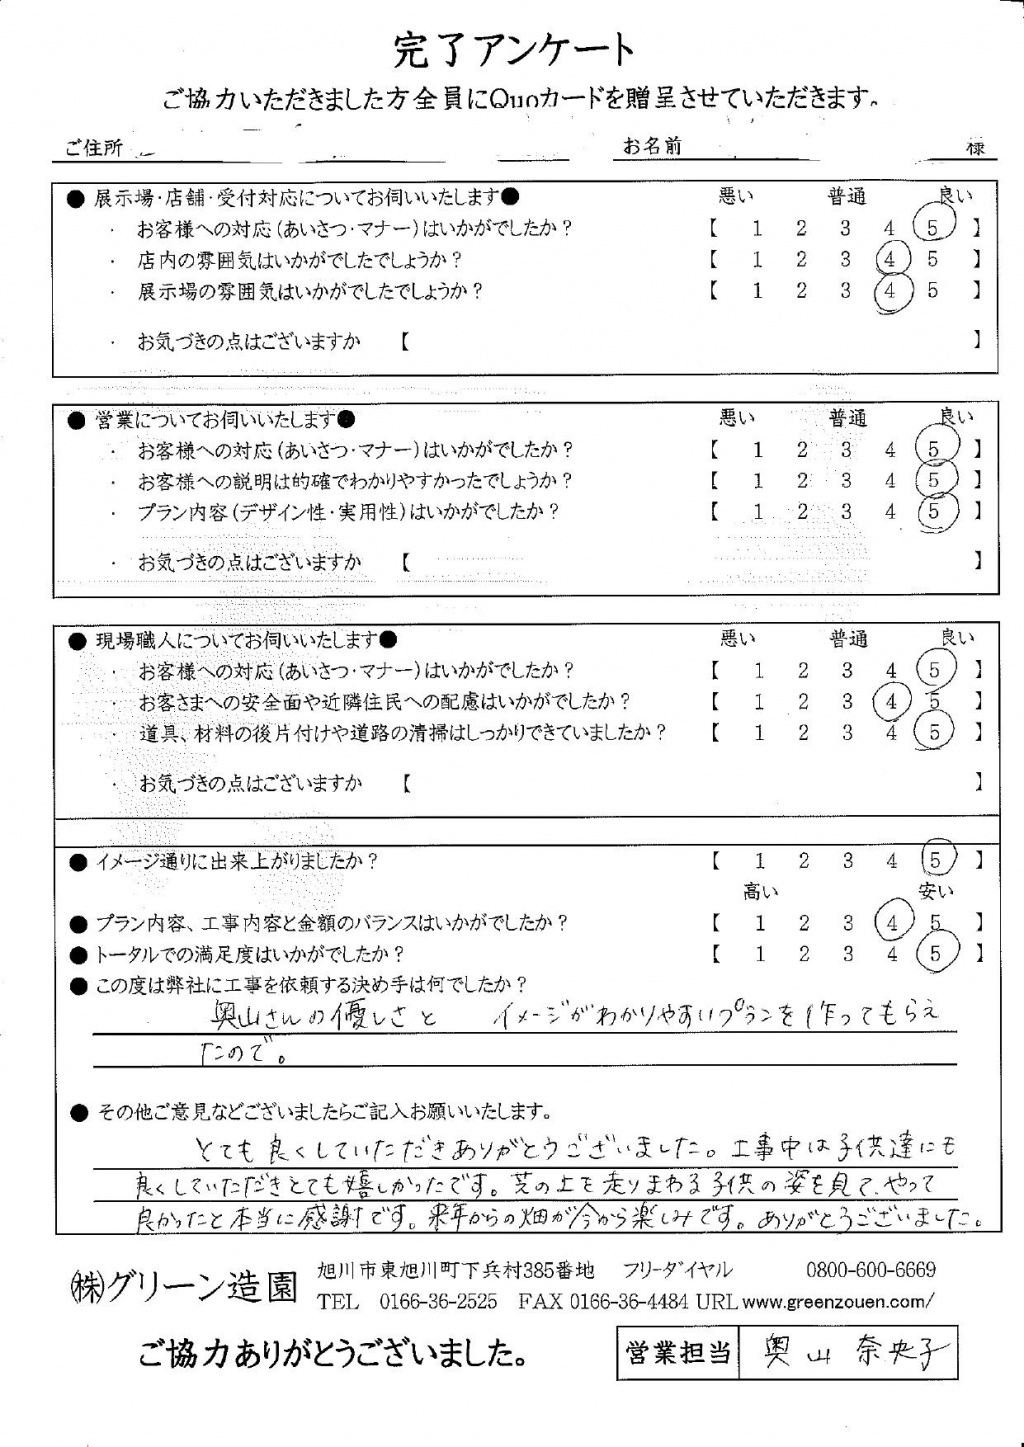 完了アンケート
ご協力いただきました方全員にQuoカードを贈呈させていただきます。
ご住所 お名前 様
● 展示場・店舗・受付対応についてお伺いいたします● 悪い 普通 良い
・ お客様への対応(あいさつ・マナー)はいかがでしたか? 【 1 2 3 4 5 】
・ 店内の雰囲気はいかがでしたでしょうか? 【 1 2 3 4 5 】
・ 展示場の雰囲気はいかがでしたでしょうか? 【 1 2 3 4 5 】
・ お気づきの点はございますか 【 】
● 営業についてお伺いいたします● 悪い 普通 良い
・ お客様への対応(あいさつ・マナー)はいかがでしたか? 【 1 2 3 4 5 】
・ お客様への説明は的確でわかりやすかったでしょうか? 【 1 2 3 4 5 】
・ プラン内容(デザイン性・実用性)はいかがでしたか? 【 1 2 3 4 5 】
・ お気づきの点はございますか 【 】
● 現場職人についてお伺いいたします● 悪い 普通 良い
・ お客様への対応(あいさつ・マナー)はいかがでしたか? 【 1 2 3 4 5 】
・ お客さまへの安全面や近隣住民への配慮はいかがでしたか? 【 1 2 3 4 5 】
・ 道具、材料の後片付けや道路の清掃はしっかりできていましたか? 【 1 2 3 4 5 】
・ お気づきの点はございますか 【 】
● イメージ通りに出来上がりましたか? 【 1 2 3 4 5 】
高い 安い
● プラン内容、工事内容と金額のバランスはいかがでしたか? 【 1 2 3 4 5 】
● トータルでの満足度はいかがでしたか? 【 1 2 3 4 5 】
● この度は弊社に工事を依頼する決め手は何でしたか?
奥山さんの優しさと イメージがわかりやすいプランを作ってもらえ
たので。
● その他ご意見などございましたらご記入お願いいたします。
とても良くしていただきありがとうございました。工事中は子供達にも
良くしていただきとても嬉しかったです。芝の上を走りまわる子供の姿を見て、やって
良かったと本当に感謝です。来年からの畑が今から楽しみです。ありがとうございました。
㈱グリーン造園 旭川市東旭川町下兵村385番地 フリーダイヤル 0800-600-6669
TEL 0166-36-2525 FAX 0166-36-4484 URL www.greenzouen.com/
ご協力ありがとうございました。 営業担当 奥山 奈央子